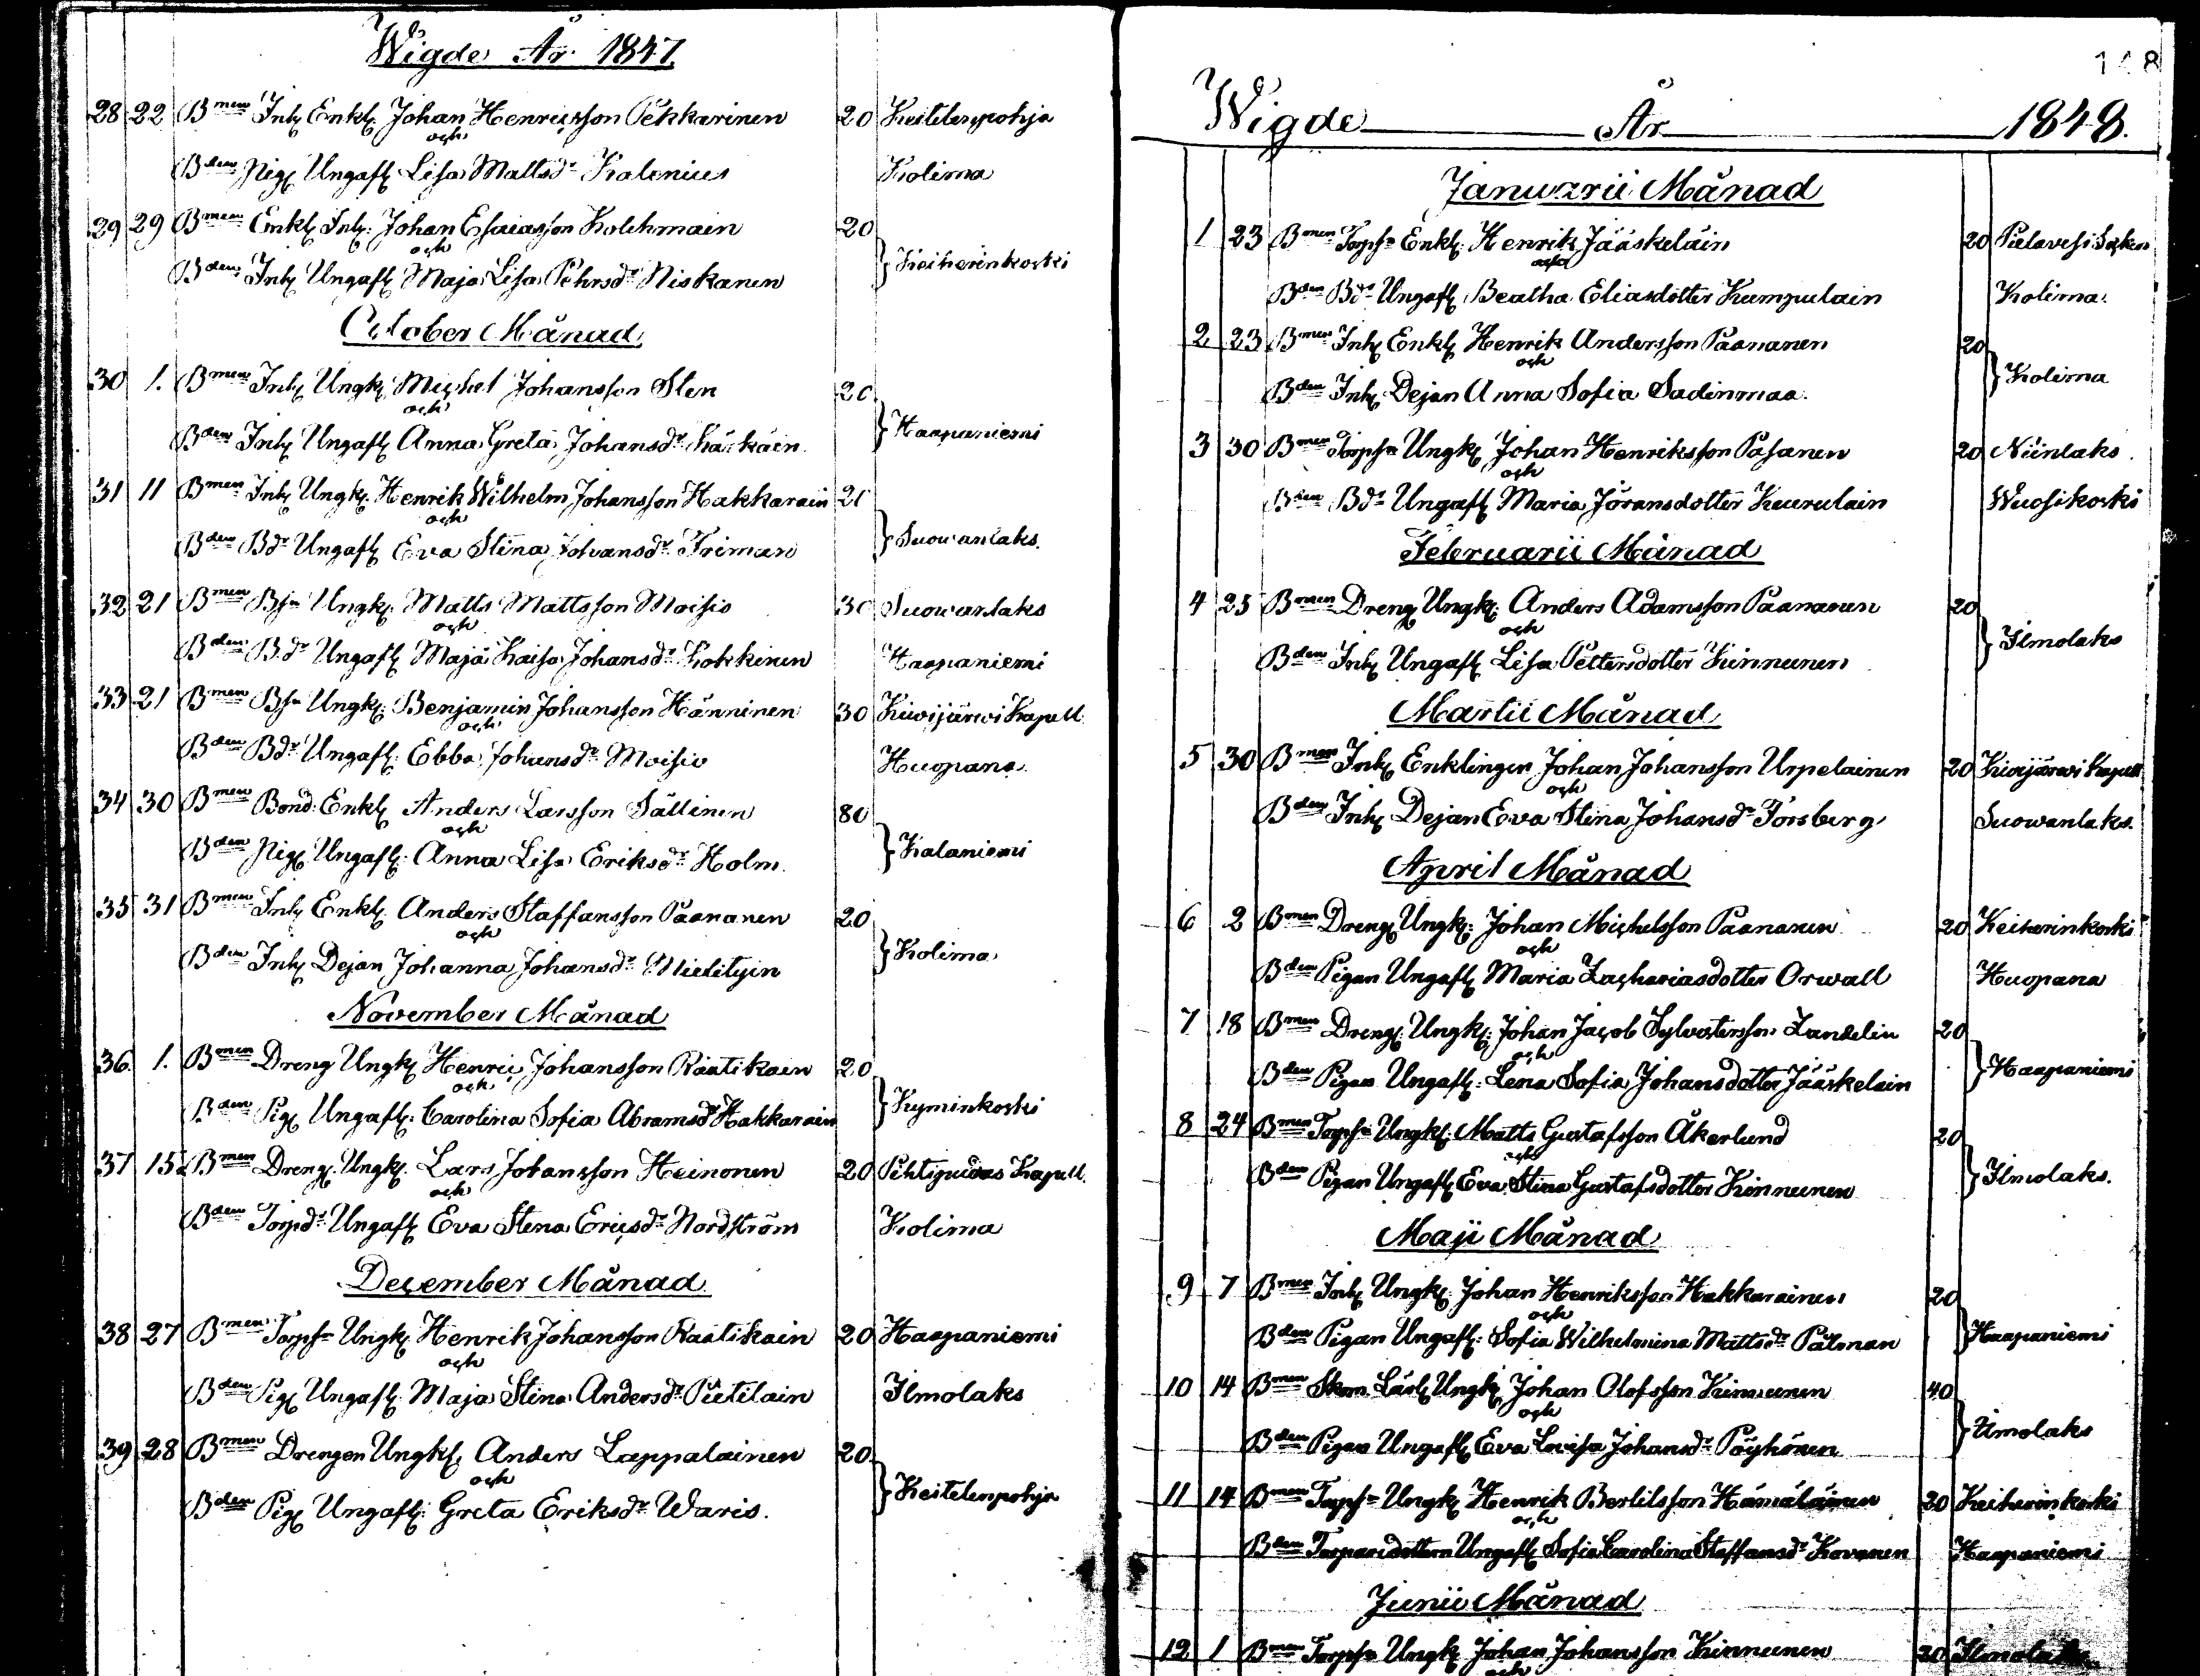 Wigde År 1847.
28 22 Bmen Inh Enkl. Johan Henricsson Pekkarinen 20 Keitelenpohja
och
Bden Pig Ungafl Lisa Mattsdr Kolenius Kolima
29 29 Bmen Enkl. Inh. Johan Esaiasson Kolehmain 20
och
Bden Inh Ungafl Maja Lisa Pehrsdr Niskanen } Keiherinkoski
October Månad
30 1. Bmen Inh Ungk Michel Johansson Sten 20
och
Bden Inh Ungafl Anna Greta Johansdr } Haapaniemi
31 11 Bmen Inh Ungk. Henrik Wilhelm Johansson Hakkarain
och
Bden Bdr Ungafl Eva Stina Johansdr Friman } Suowanlaks.
32 21 Bmen Bsn Ungk. Matts Mattsson Moisio 30 Suowanlaks
och
Bden Bdr Ungafl Maja Kaisa Johansdr Kokkinen Haapaniemi
33 21 Bmen Bsn Ungk. Benjamin Johansson Hänninen 30 Kiwijärwi Kapell
och
Bden Bdr Ungafl. Ebba Johansdr Moisio Huopana.
34 30 Bmen Bond. Enkl Anders Larsson Sällinen 80
och
Bden Pig Ungafl. Anna Lisa Eriksdr Holm. } Kalaniemi
35 31 Bmen Inh Enkl. Anders Staffansson Paananen 20
och
Bden Inh Dejan Johanna Johansdr Mielityin } Kolima
November Månad
36. 1. Bmen Dreng Ungk Henric Johansson Raatikain 20
och
Bden Pig Ungafl. Carolina Sofia Abramsdr Hakkarain } Kyminkoski
37 15 Bmen Dreng. Ungk. Lars Johansson Heinonen 20 Pihtipudas Kapell.
och
Bden Torpdr Ungafl Eva Stena Ericsdr Nordström Kolima
December Månad
38 27 Bmen Torpsn Ungk Henrik Johansson Raatikain 20 Haapaniemi
och
Bden Pig Ungafl. Maja Stina Andersdr Pietilain Ilmolaks
39 28 Bmen Drengen Ungk Anders Lappalainen 20
och
Bden Pig Ungafl. Greta Eriksdr Waris. } Keitelenpohja
148
Wigde År 1848.
Januarii Månad
1 23 Bmen Torpsn Enkl. Henrik Jääskeläin 20 Pielavesi Sokn
och
Bden Bdr Ungafl Beatha Eliasdotter Kumpulain Kolima.
2 23 Bmen Inh Enkl Henrik Andersson Paananen 20
och
Bden Inh Dejan Anna Sofia Sadinmaa. } Kolima
3 30 Bmen Torpsn Ungk Johan Henriksson Pasanen 20 Niinlaks.
och
Bden Bdr Ungafl Maria Jöransdotter Kaurulain Wuosikoski
Februarii Månad
4 25 Bmen Dreng Ungk. Anders Adamsson Paananen 20
och
Bden Inh Ungafl Lisa Pettersdotter Kinnunen } Ilmolaks
Martii Månad
5 30 Bmen Inh Enklingen Johan Johansson Urpelainen 20 Kiwijärwi Kapell
och
Bden Inh Dejan Eva Stina Johansdr Forsberg Suowanlaks.
April Månad
6 2 Bmen Dreng Ungk. Johan Michelsson Paananen 20 Keiherinkoski
och
Bden Pigan Ungafl Maria Zachariasdotter Orwall Huopana
7 18 Bmen Dreng. Ungk. Johan Jacob Sylvestersson Zandelin 20
och
Bden Pigan Ungafl. Lena Sofia Johansdotter Jääskelain } Haapaniemi
8 24 Bmen Torpsn Ungk. Matts Gustafsson Åkerlund 20
och
Bden Pigan Ungafl Eva Stina Gustafsdotter Kinnunen } Ilmolaks.
Maji Månad
9 7 Bmen Inh Ungk. Johan Henriksson Hakkarainen 20
och
Bden Pigan Ungafl. Sofia Wilhelmina Mattsdr Pålman } Haapaniemi
10 14 Bmen Skom Lärl Ungk Johan Olofsson Kinnunen 40
och
Bden Pigan Ungafl Eva Lovisa Johansdr Pöyhönen } Ilmolaks
11 14 Bmen Torpsn Ungk Henrik Bertilsson Hämäläinen 20 Keiherinkoski
och
Bden Torparedottern Ungafl Sofia Carolina Staffansdr Kovanen Haapaniemi
Junii Månad
12 1 Bmen Torpsn Ungk Johan Johansson Kinnunen 20 Ilmolaks
och